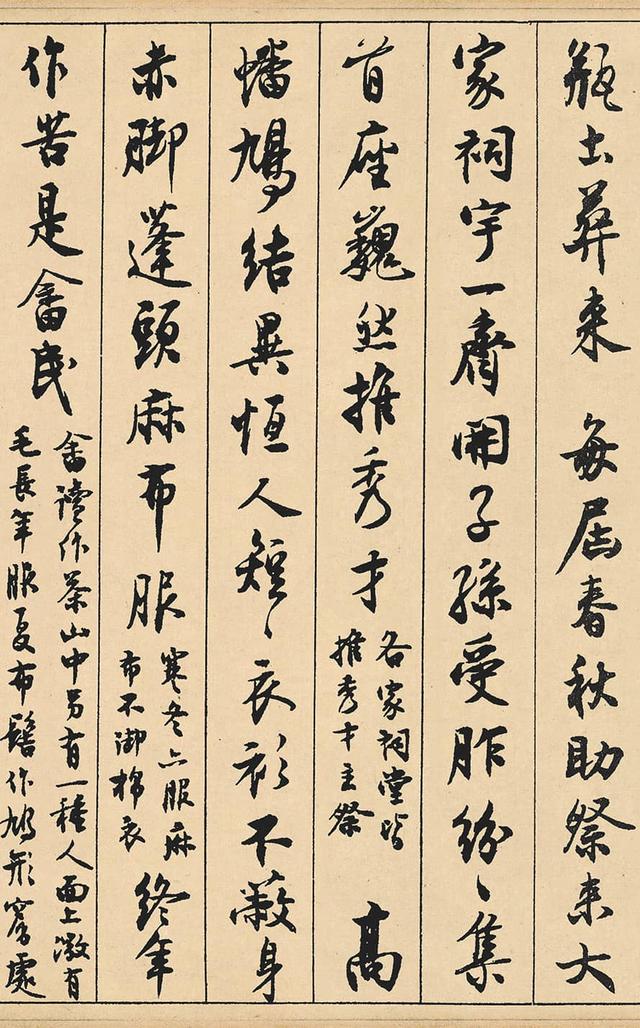 瓶土葬来 每屆春秋助祭来大
家祠宇一齊開子孫受胙紛〻集
首座巍然推秀才
各家祠堂皆
推秀才主祭
高
蟠鳩結異恒人短〻衣衫不蔽身
赤脚蓬頭麻布服
寒冬亦服麻
布不御棉衣
終年
作苦是畬民
畬讀作茶山中另有一種人面上微有
毛長年服夏布髻作鳩形窮處